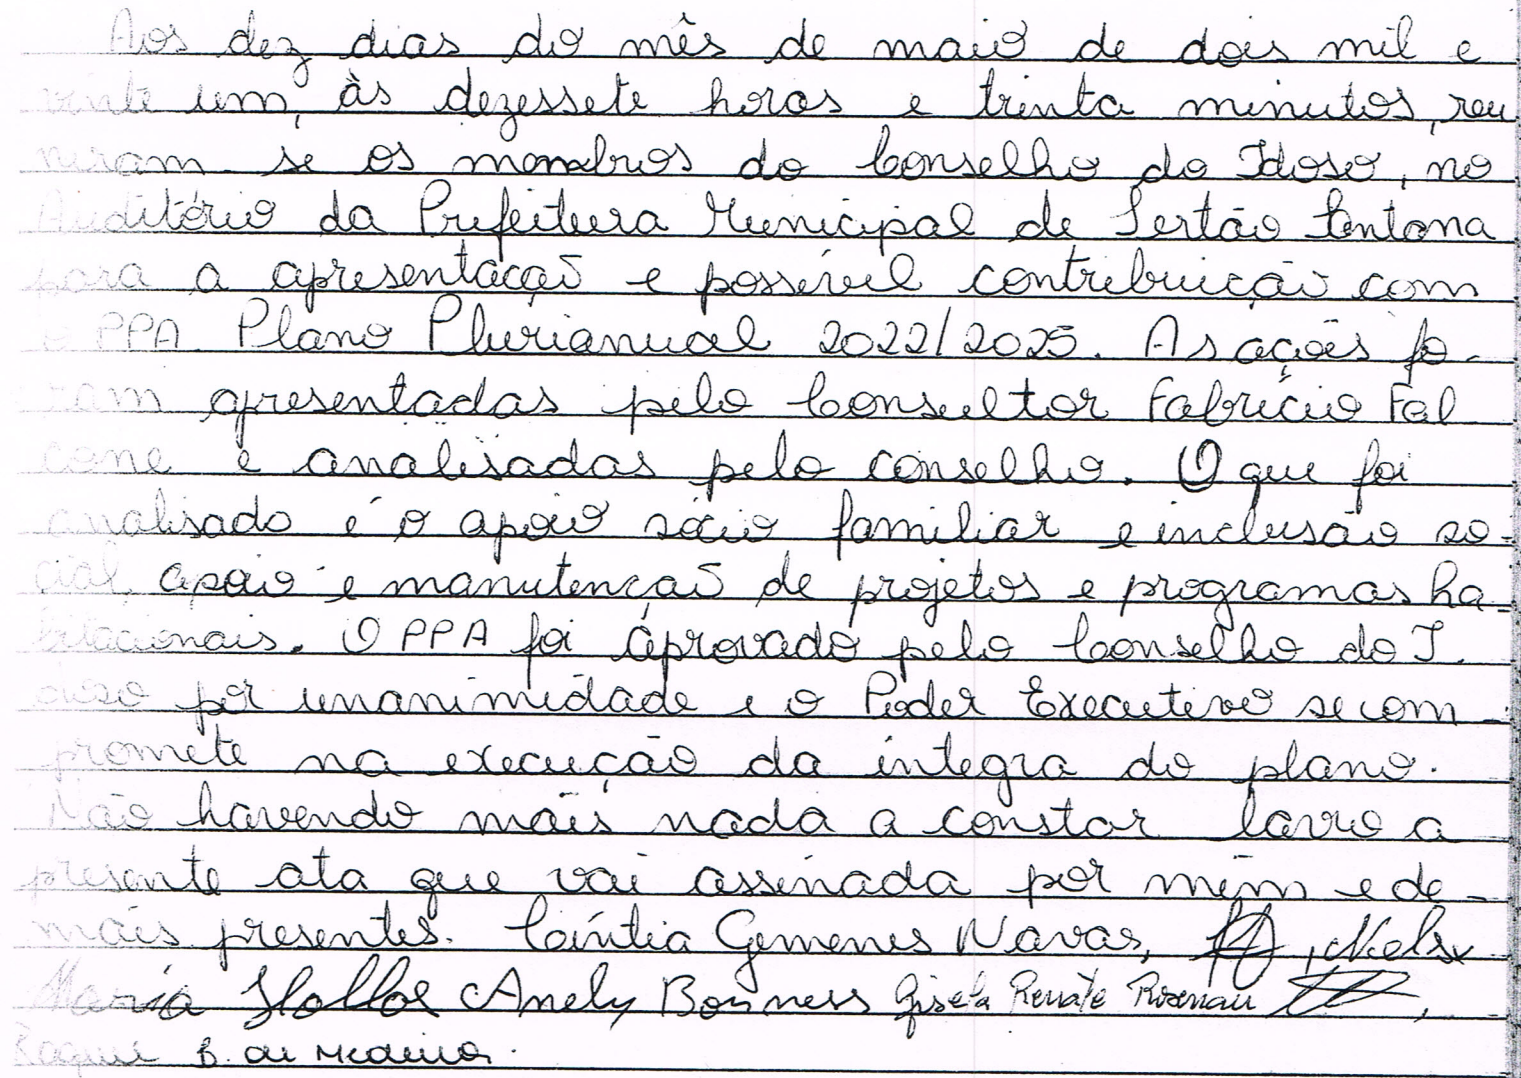 Aos dez dias do mês de maio de dois mil e
vinte um, às dezessete horas e trinta minutos, reu
niram-se os membros do Conselho do Idoso, no
Auditório da Prefeitura Municipal de Sertão Santana
para a apresentação e possível contribuição com
o PPA Plano Plurianual 2022/2025. As ações fo-
ram apresentadas pelo Consultor Fabrício Fal
cone e analisadas pelo conselho. O que foi
analisado é o apoio sócio familiar e inclusão so-
cial, apoio e manutenção de projetos e programas ha-
bitacionais. O PPA foi aprovado pelo Conselho do I-
doso por unanimidade e o Poder Executivo se com-
promete na execução da íntegra do plano.
Não havendo mais nada a constar lavro a
presente ata que vai assinada por mim e de-
mais presentes. Cíntia Gemenes Navas,
Maria Anely Bonness Gisela Renate Rosenau
B. de Medeiros.